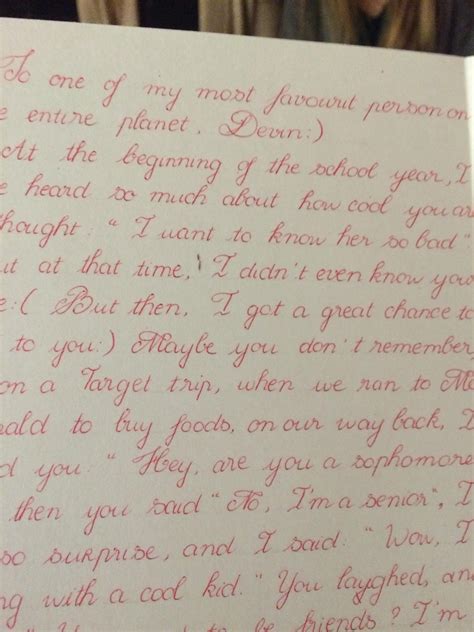 To one of my most favourit person on
e entire planet. Devin:)
At the beginning of the school year, I
e heard so much about how cool you are
thought: " I want to know her so bad"
ut at that time, I didn't even know you
e:( But then, I got a great chance to
to you:) Maybe you don't remember
on a Target trip, when we ran to M
nald to buy foods, on our way back, I
d you: " Hey, are you a sophomore
then you said " No, I'm a senior", I
so surprise, and I said: " Wow, I
ng with a cool kid." You layghed, an
to be friends? I'm